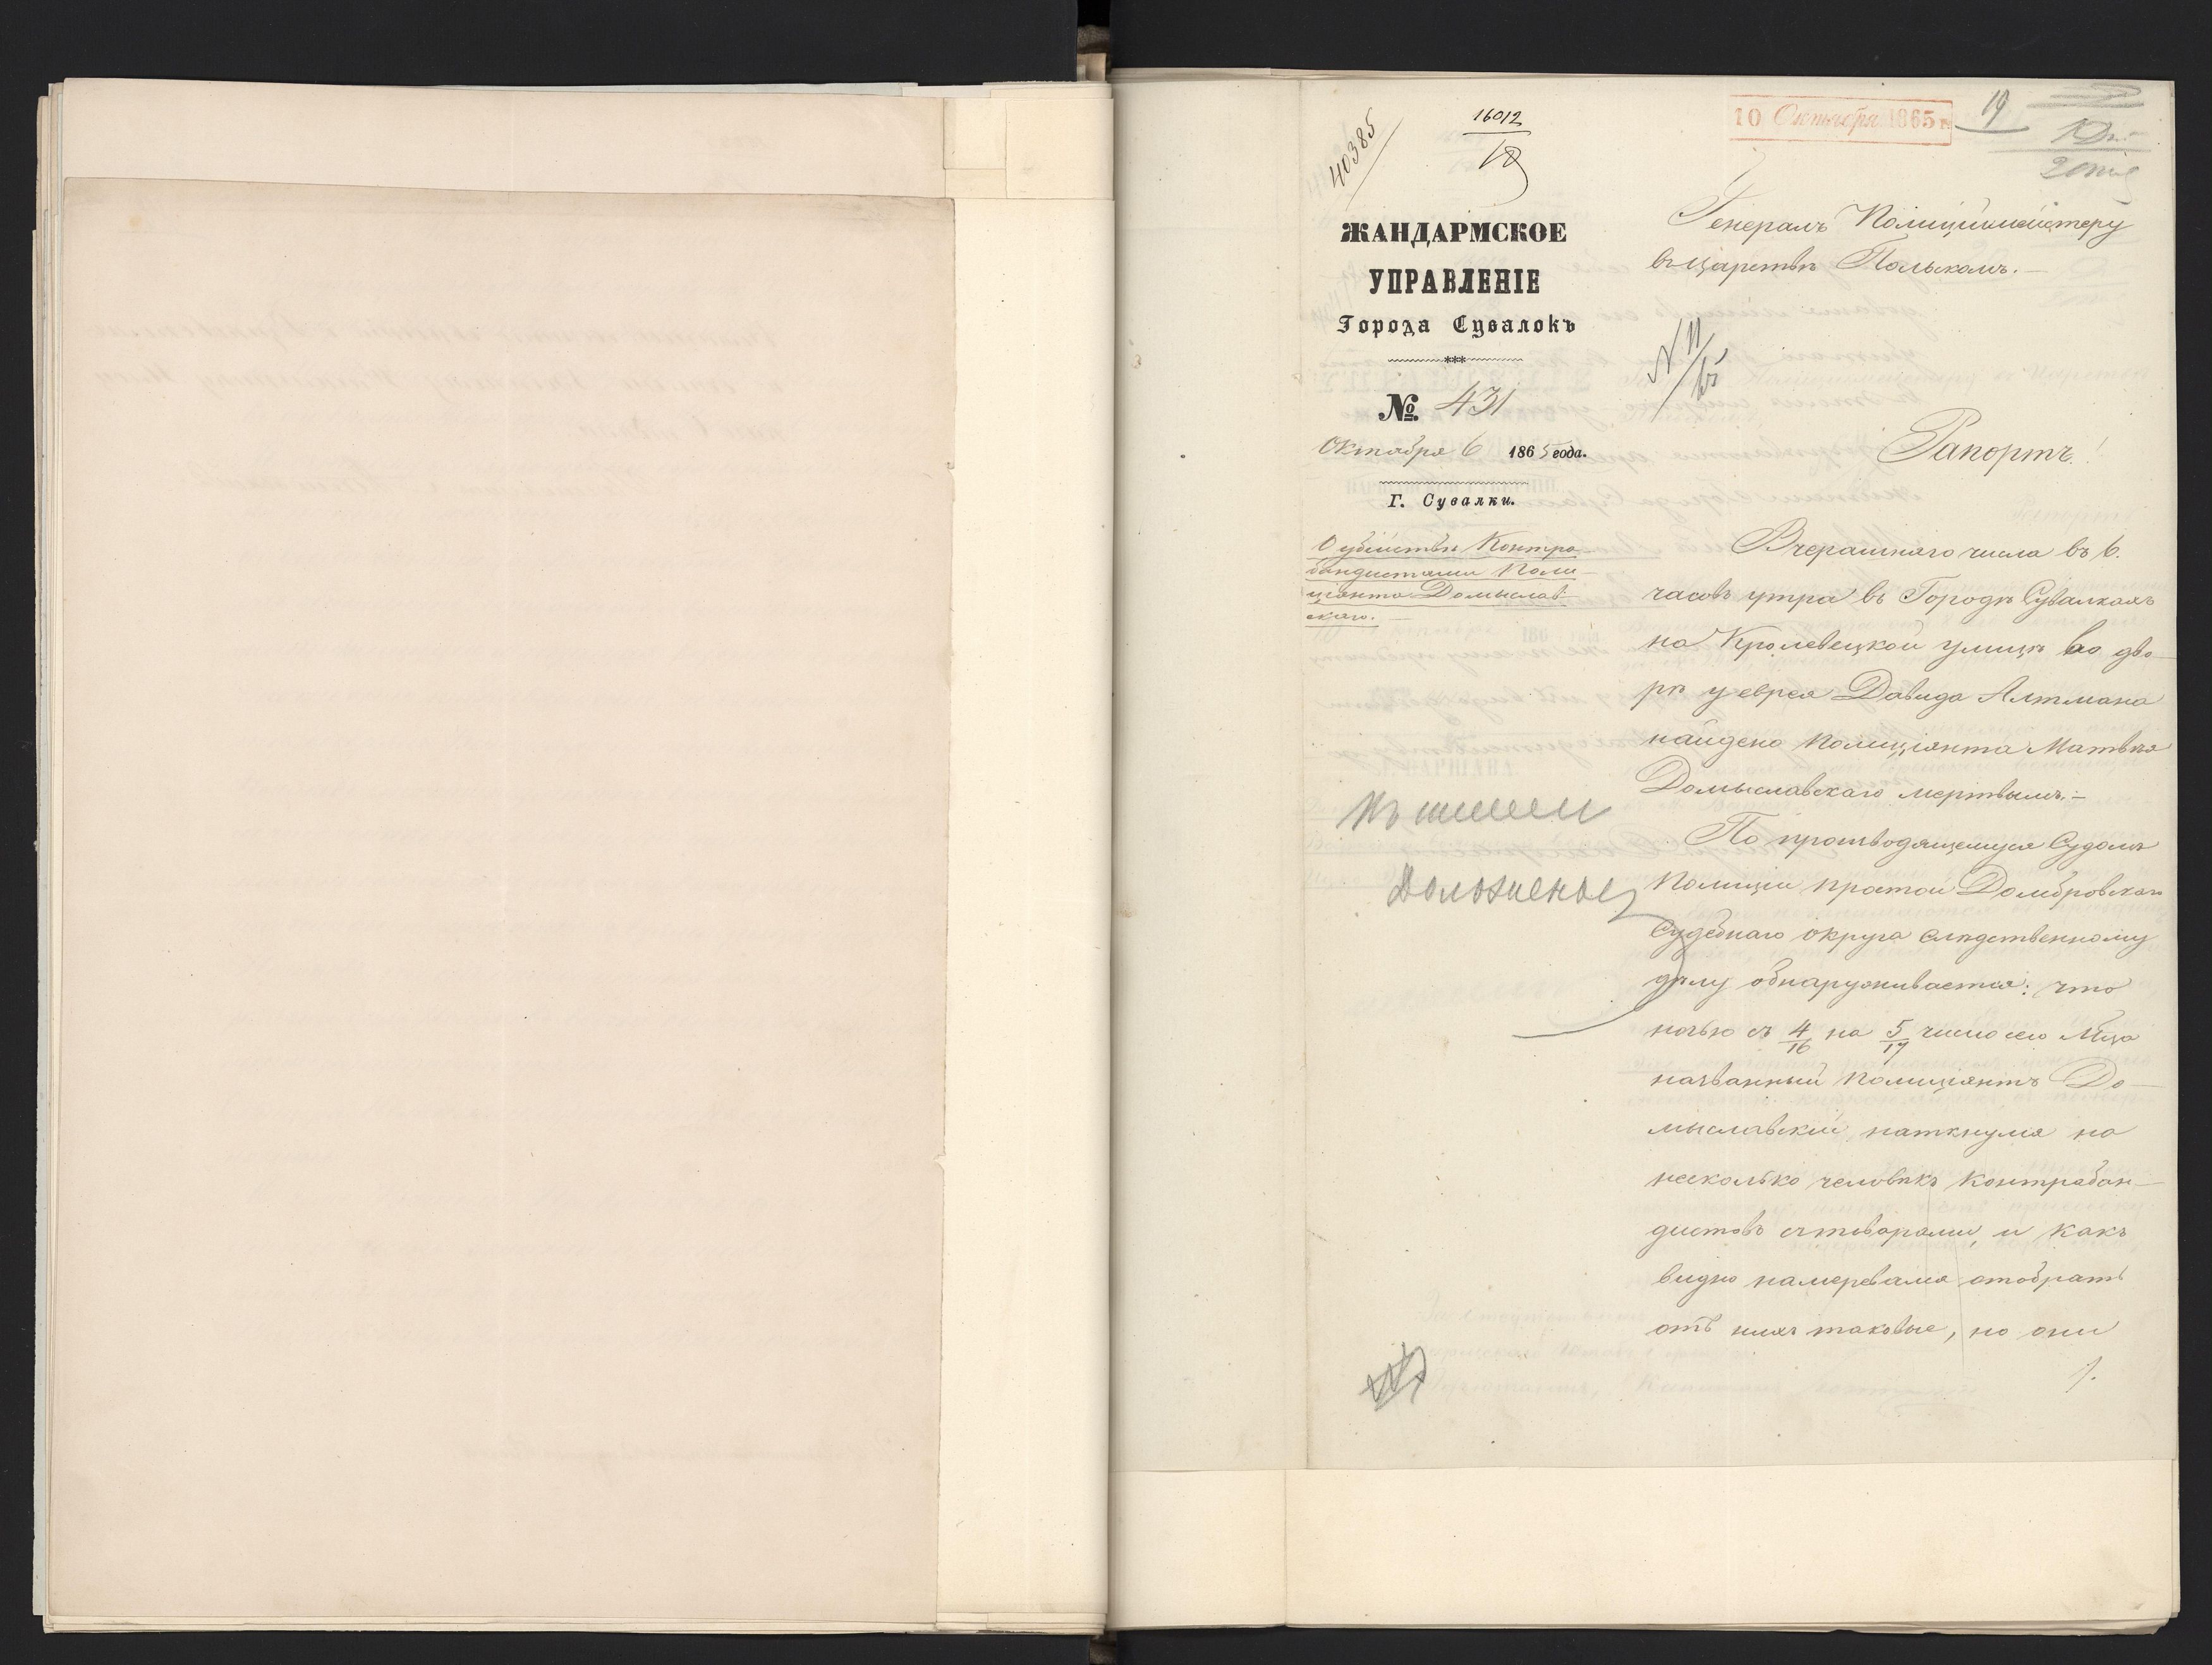 40385
16012
10
10 Октября 1865 г.
19
ЖАНДАРМСКОЕ
УПРАВЛЕНІЕ
Города Сувалокъ
№ 431
Октября 6 1865 года.
Г. Сувалки.
О убійствѣ Контра-
бандистами Поли-
ціянта Домыслав-
скаго.
Генералъ Полиціймейстеру
въ Царствѣ Польскомъ.
Рапортъ!
Вчерашняго числа въ 6.
часовъ утра въ Городѣ Сувалкахъ
на Кролевецкой улицѣ во дво-
рѣ у еврея Давида Алтмана
найдено Полиціянта Матвѣя
Домыславскаго мертвымъ.-
По производящемуся Судомъ
Полиціи простой Домбровскаго
Судебнаго округа слѣдственному
дѣлу обнаруживается: что
ночью съ 4/16 на 5/17 число сего Мца
названный Полиціянтъ До-
мыславскій наткнулся на
несколько человѣкъ Контрабан-
дистовъ съ товарами, и какъ
видно намеревался отобрать
отъ нихъ таковые, но они
К
Доложено